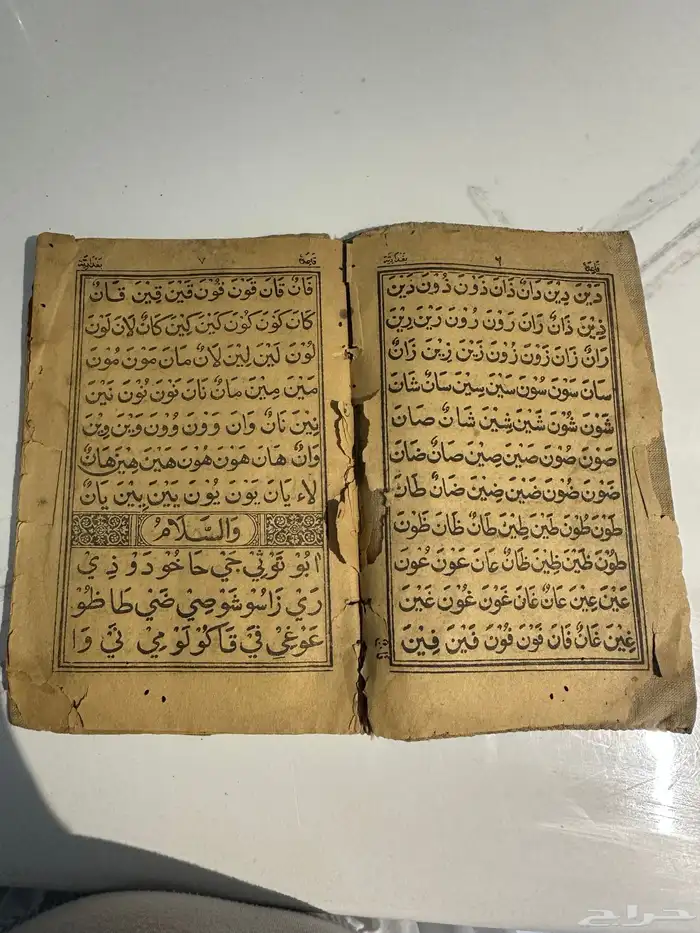 قاعدة ٦ بغدادية
دَيْنَ دِيْنَ دَانٌ ذَانَ ذَوْنَ ذُوْنَ ذَيْنَ
ذِيْنَ ذَانٌ رَانَ رَوْنَ رُوْنَ رَيْنَ رِيْنَ
رَانٌ زَانَ زَوْنَ زُوْنَ زَيْنَ زِيْنَ زَانٌ
سَانَ سَوْنَ سُوْنَ سَيْنَ سِيْنَ سَانٌ شَانَ
شَوْنَ شُوْنَ شَيْنَ شِيْنَ شَانٌ صَانَ
صَوْنَ صُوْنَ صَيْنَ صِيْنَ صَانٌ ضَانَ
ضَوْنَ ضُوْنَ ضَيْنَ ضِيْنَ ضَانٌ طَانَ
طَوْنَ طُوْنَ طَيْنَ طِيْنَ طَانٌ ظَانَ ظَوْنَ
ظُوْنَ ظَيْنَ ظِيْنَ ظَانٌ عَانَ عَوْنَ عُوْنَ
عَيْنَ عِيْنَ عَانٌ غَانَ غَوْنَ غُوْنَ غَيْنَ
غِيْنَ غَانٌ فَانَ فَوْنَ فُوْنَ فَيْنَ فِيْنَ
قاعدة ٧ بغدادية
فَانٌ قَانَ قَوْنَ قُوْنَ قَيْنَ قِيْنَ قَانٌ
كَانَ كَوْنَ كُوْنَ كَيْنَ كِيْنَ كَانٌ لَانَ لَوْنَ
لُوْنَ لَيْنَ لِيْنَ لَانٌ مَانَ مَوْنَ مُوْنَ
مَيْنَ مِيْنَ مَانٌ نَانَ نَوْنَ نُوْنَ نَيْنَ
نِيْنَ نَانٌ وَانَ وَوْنَ وُوْنَ وَيْنَ وِيْنَ
وَانٌ هَانَ هَوْنَ هُوْنَ هَيْنَ هِيْنَ هَانٌ
لاء يَانَ يَوْنَ يُوْنَ يَيْنَ يِيْنَ يَانٌ
وَالسَّلَامُ
ابُو تَوْثِي جَي حَا خُو دَوْ ذِي
رَيْ زَا سُو شَوْ صِي ضَي طَا ظُو
عَوْ غِي فَي قَا كُو لَوْ مِي نَي وَا
حراج